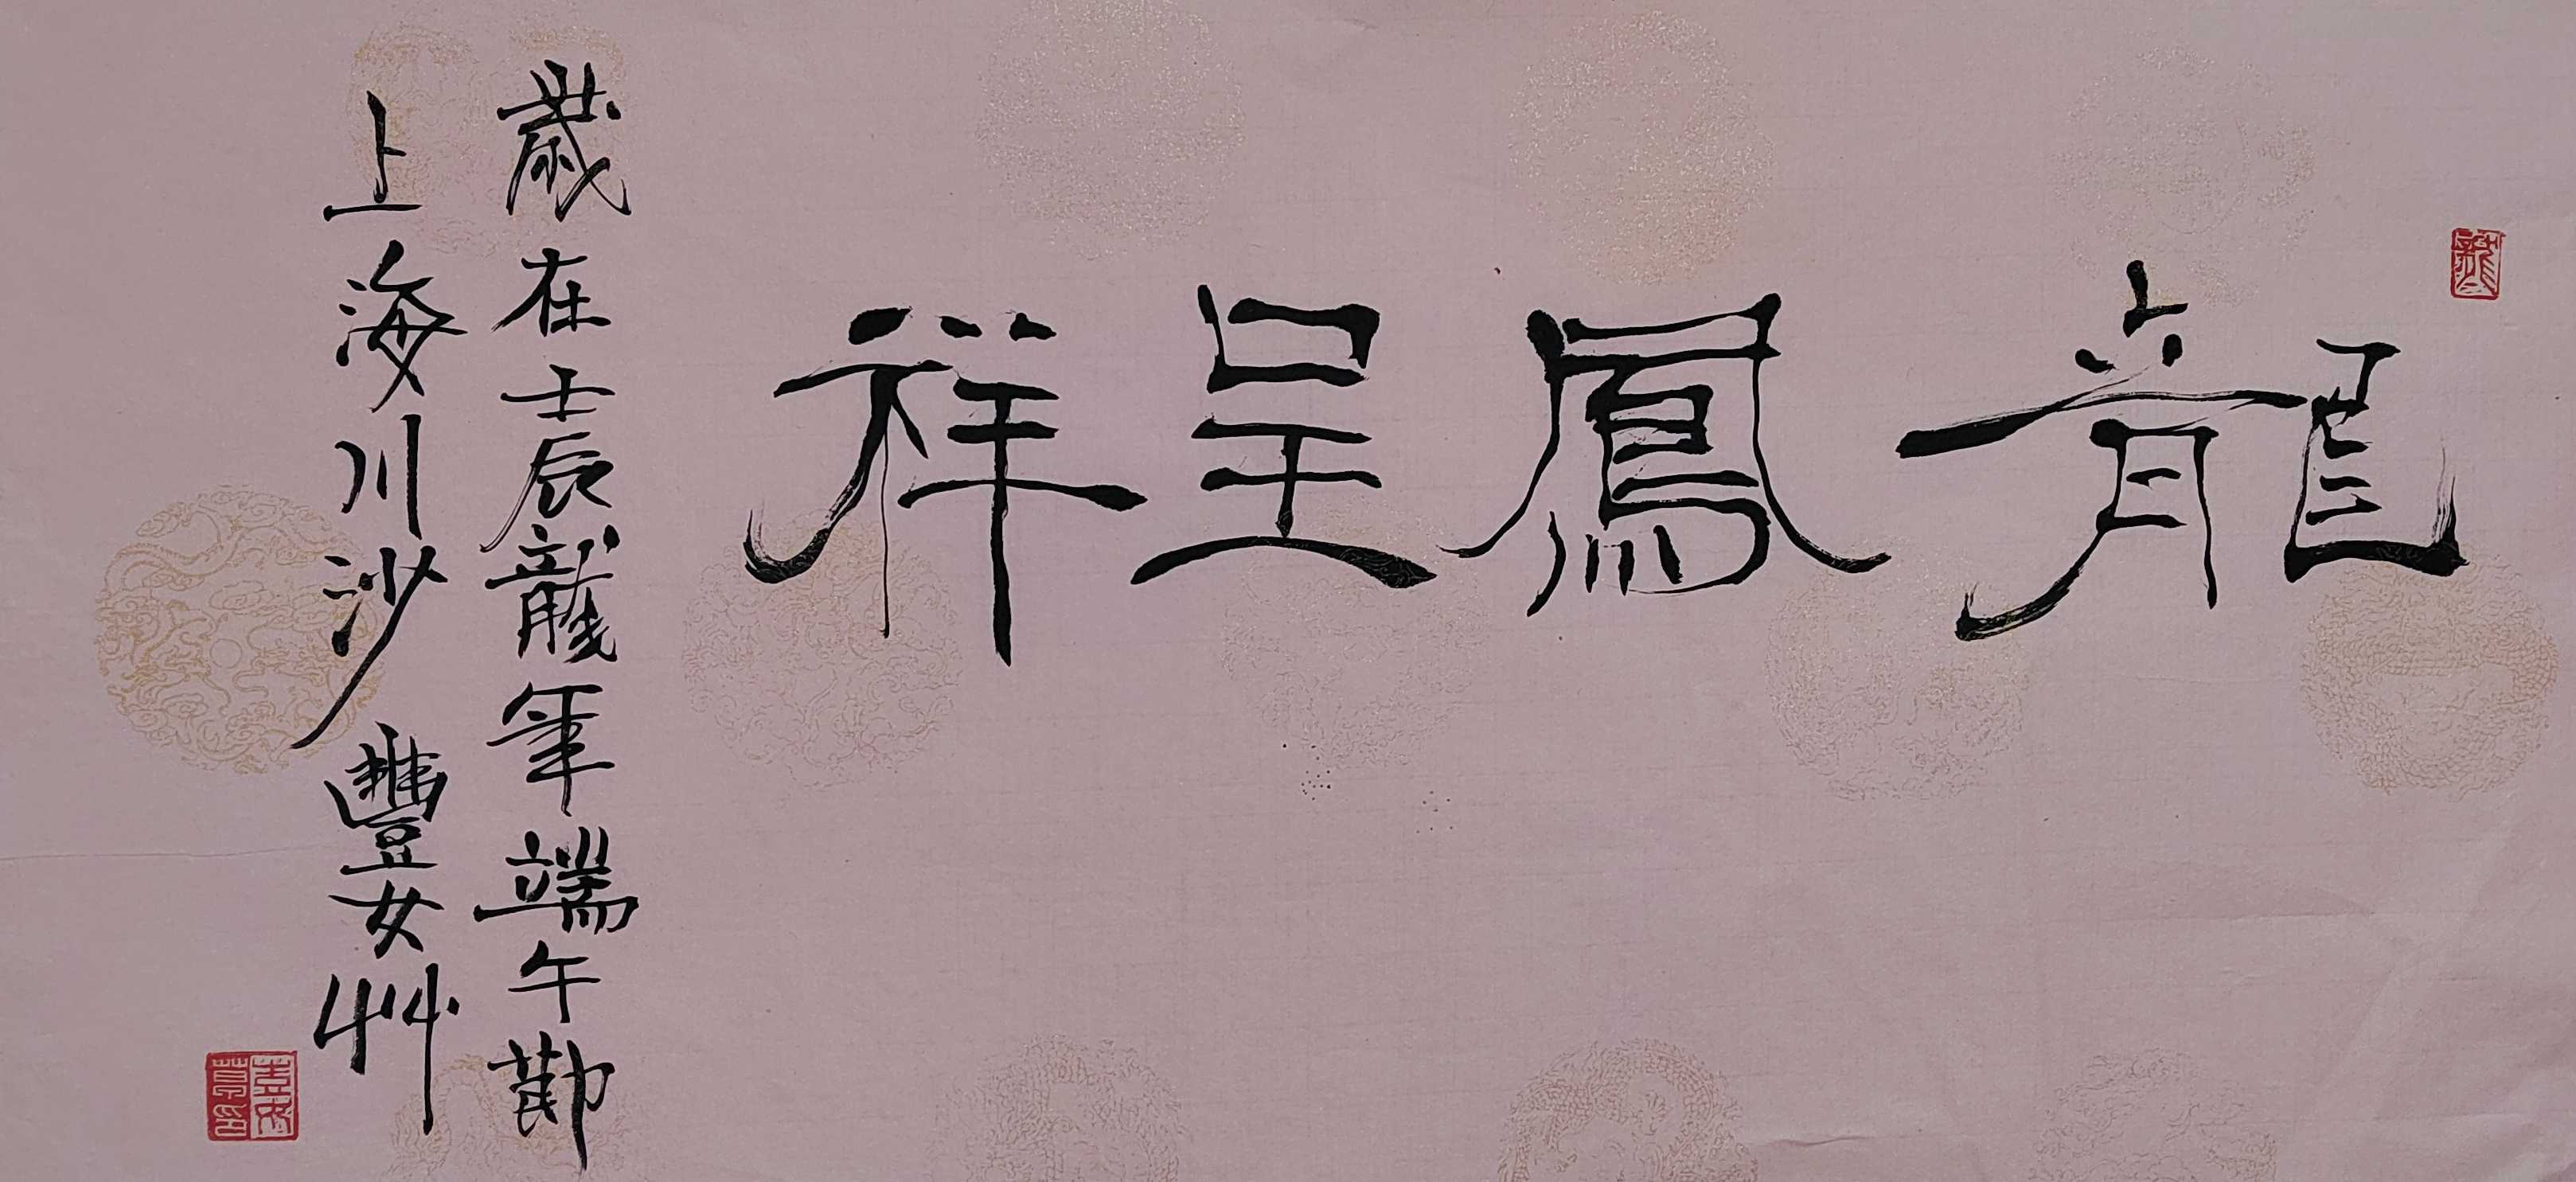 龍鳳呈祥
歲在壬辰龍年端午
上海川沙 豐女艸